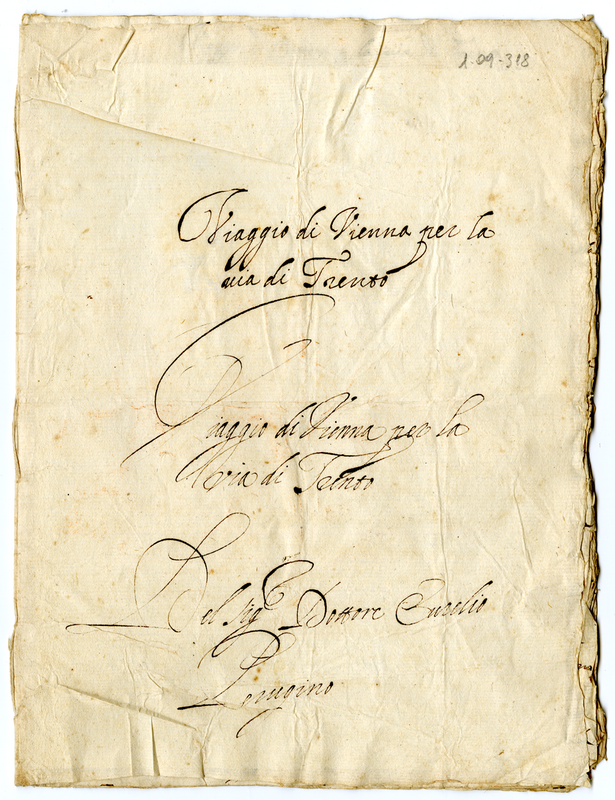 1-09-318
Viaggio di Vienna per la
via di Trento
Viaggio di Vienna per la
via di Trento
Del Sig.re Dottore Eusebio
Perugino